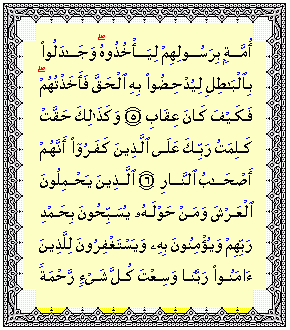 أُمَّةٍۭ بِرَسُولِهِمْ لِيَأْخُذُوهُ ۖ وَجَـٰدَلُوا۟
بِٱلْبَـٰطِلِ لِيُدْحِضُوا۟ بِهِ ٱلْحَقَّ فَأَخَذْتُهُمْ ۖ
فَكَيْفَ كَانَ عِقَابِ ۝٥ وَكَذَٰلِكَ حَقَّتْ
كَلِمَتُ رَبِّكَ عَلَى ٱلَّذِينَ كَفَرُوٓا۟ أَنَّهُمْ
أَصْحَـٰبُ ٱلنَّارِ ۝٦ ٱلَّذِينَ يَحْمِلُونَ
ٱلْعَرْشَ وَمَنْ حَوْلَهُۥ يُسَبِّحُونَ بِحَمْدِ
رَبِّهِمْ وَيُؤْمِنُونَ بِهِۦ وَيَسْتَغْفِرُونَ لِلَّذِينَ
ءَامَنُوا۟ رَبَّنَا وَسِعْتَ كُلَّ شَىْءٍ رَّحْمَةً